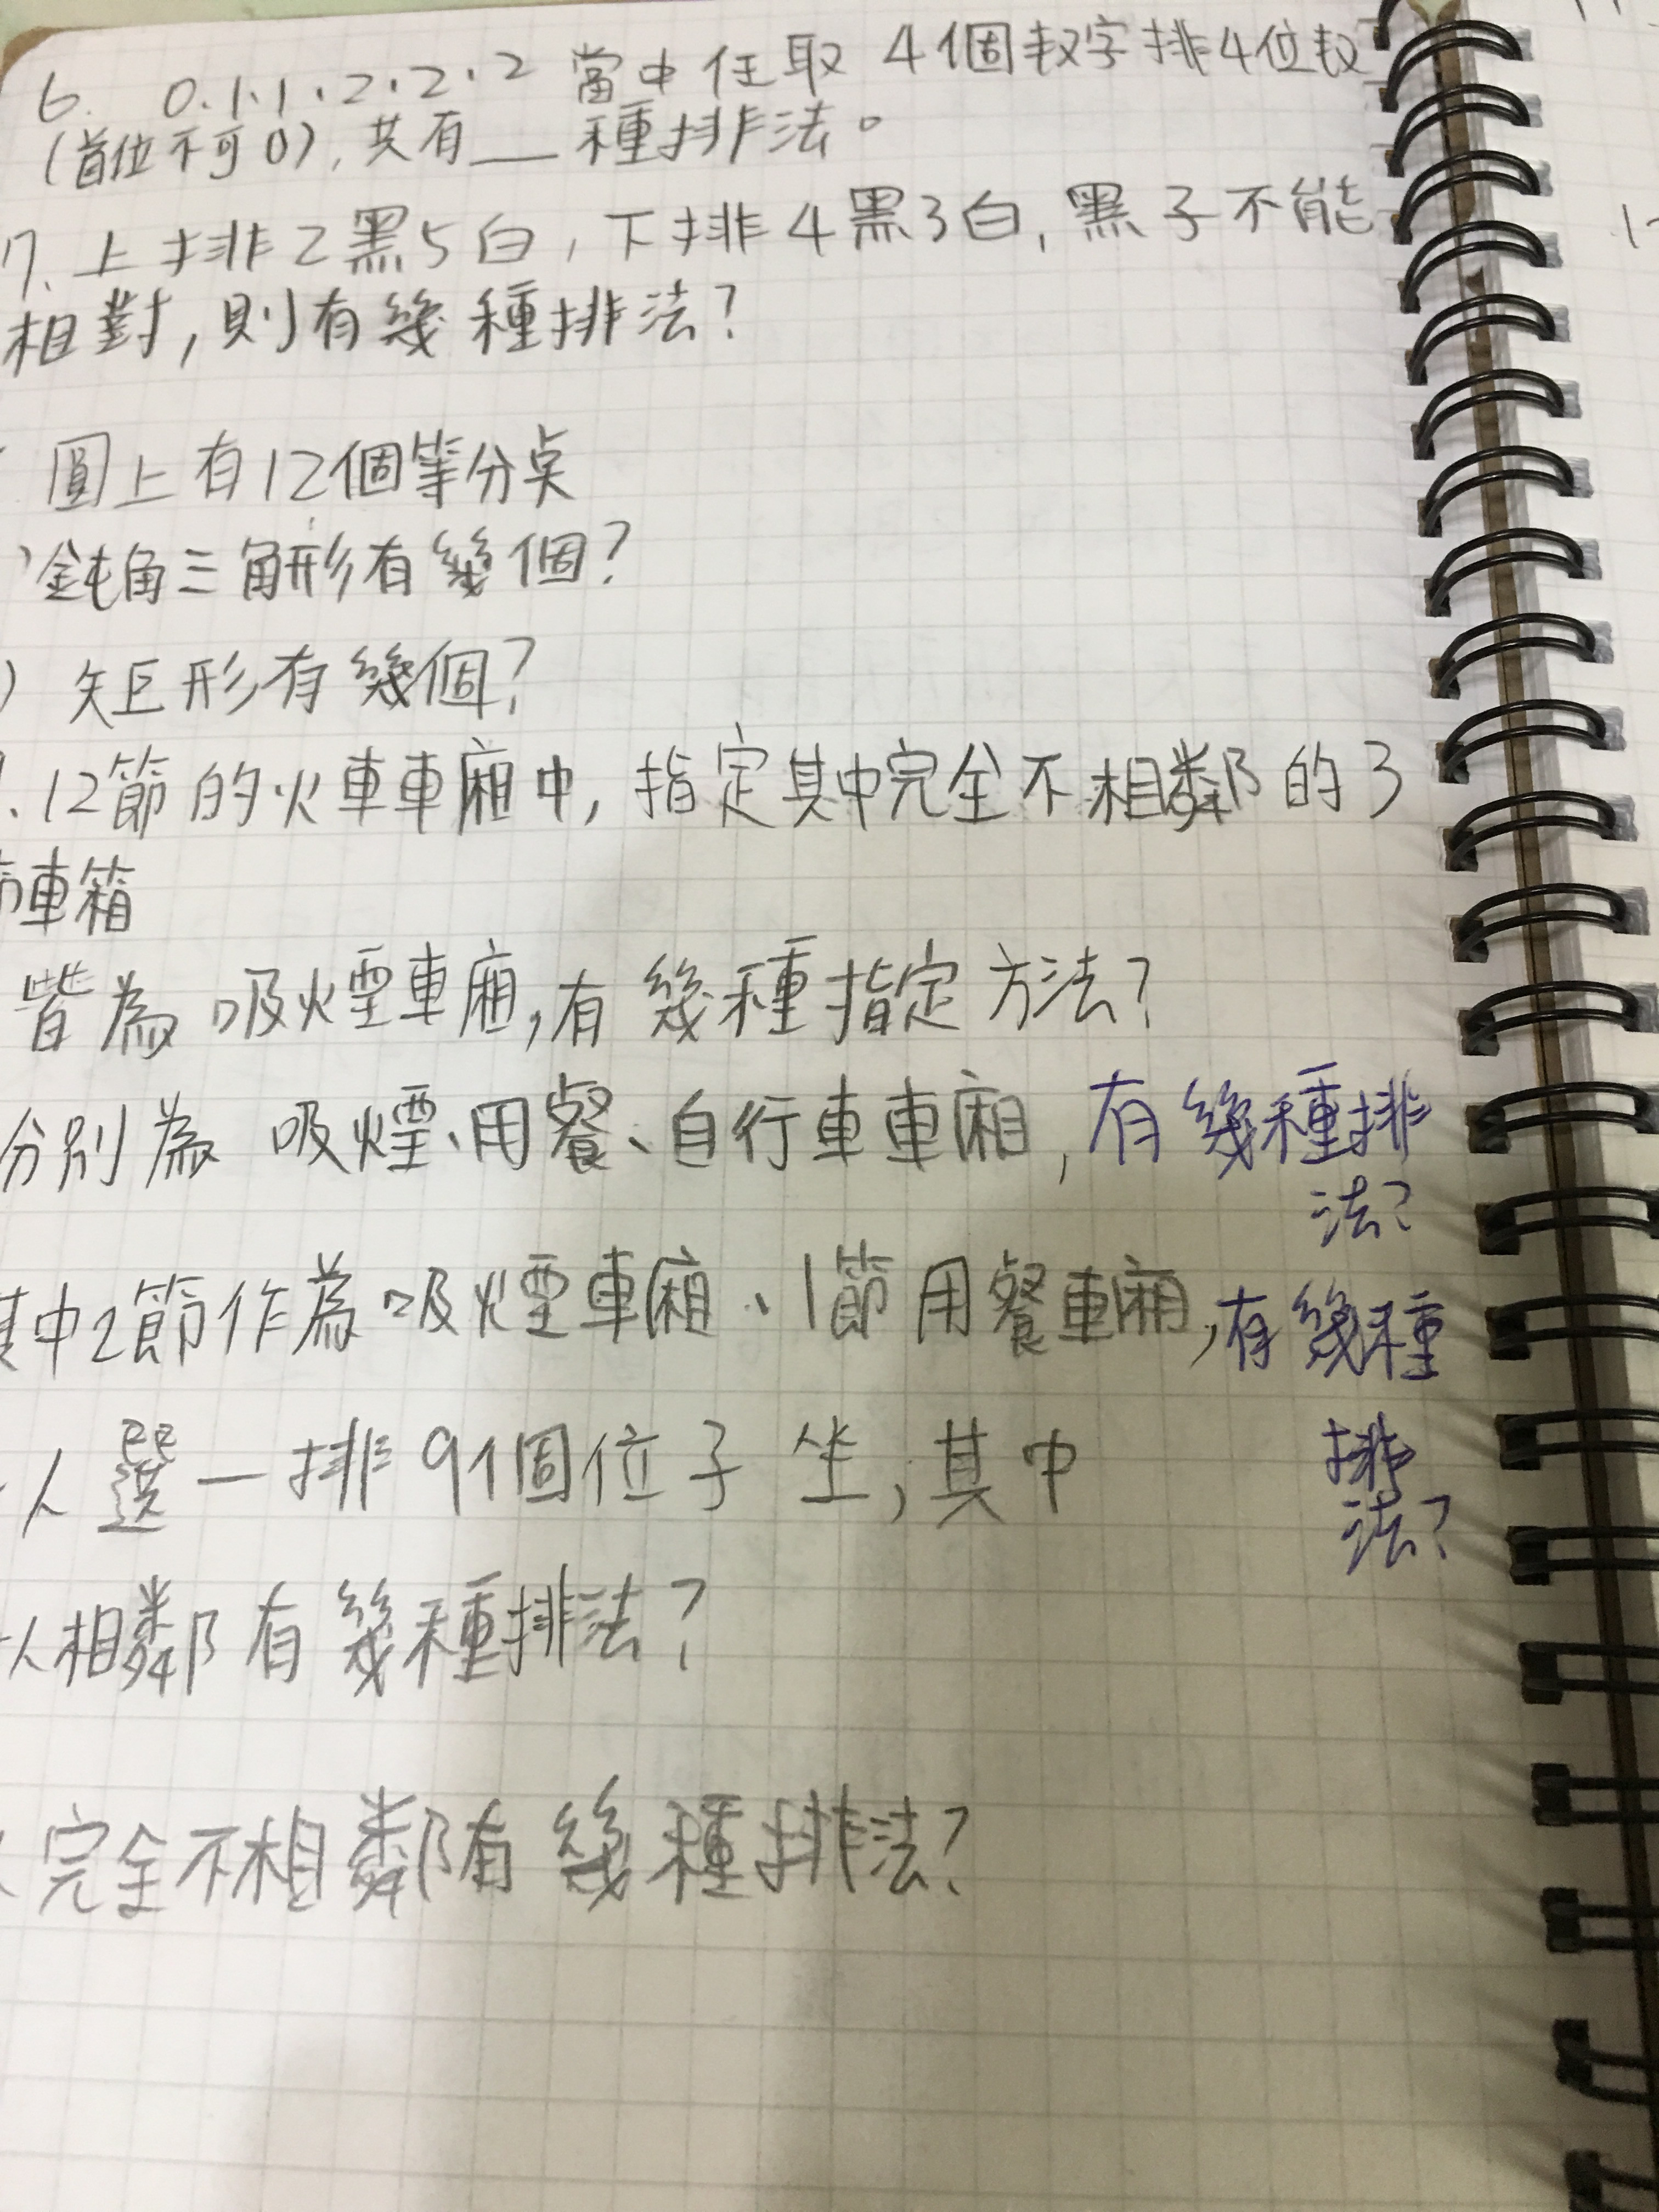 6. 0.1.1.2.2.2 當中任取 4個数字排4位数
(首位不可0),共有__種排法。
7. 上排2黑5白,下排4黑3白,黑子不能
相對,則有幾種排法?
圓上有12個等分点
鈍角三角形有幾個?
) 矩形有幾個?
.12節的火車車廂中,指定其中完全不相鄰的3
節車箱
皆為 吸煙車廂,有幾種指定方法?
分別為 吸煙、用餐、自行車車廂,有幾種排
法?
其中2節作為吸煙車廂、1節用餐車廂,有幾種
排
法?
人選一排9個位子坐,其中
人相鄰有幾種排法?
完全不相鄰有幾種排法?